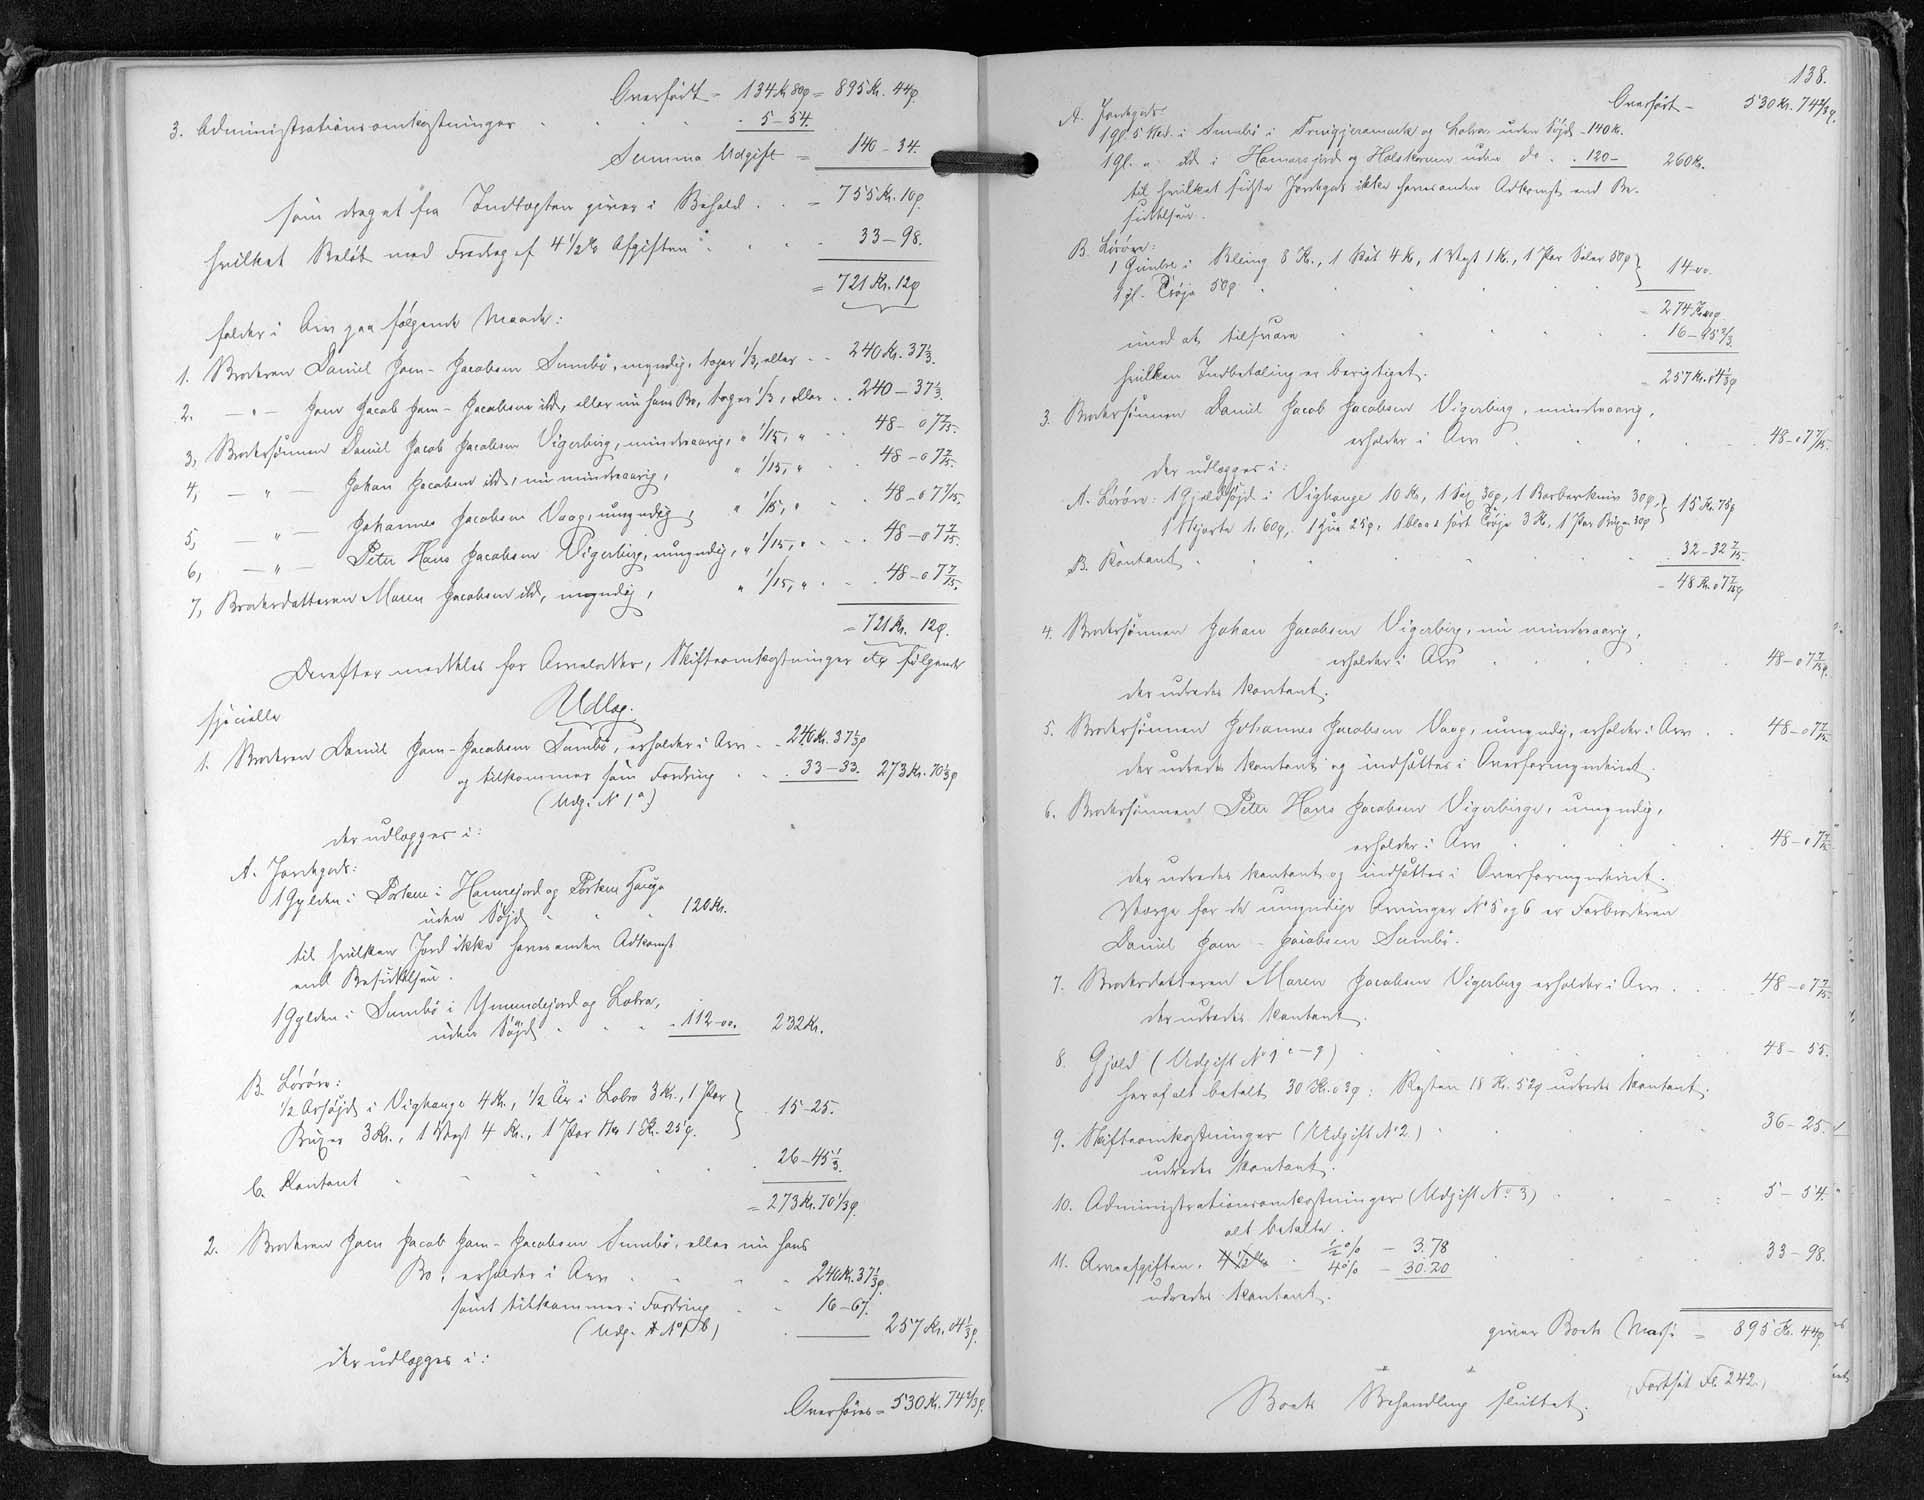 Overført - 134 Kr 80 ø = 895 Kr. 44 ø.
3. Administrationsomkostninger . . . . 5 - 54.
Summa Udgift = 140 - 34.
som draget fra Indtægten giver i Behold . . = 755 Kr. 10 ø.
hvilket Beløb med Fradrag af 4 1/2 % Afgiften . . . . 33 - 98.
= 721 Kr. 12 ø
falder i Arv paa følgende Maade:
1. Broderen Daniel Joen-Jacobsen Sumbø, myndig, tager 1/3, eller . . 240 Kr. 37 1/3.
2. - " - Joen Jacob Joen-Jacobsen ibd., eller nu hans Bo, tager 1/3, eller . . 240 - 37 1/3.
3, Brodersønnen Daniel Jacob Jacobsen Vigerbirg, mindreaarig, " 1/15, " . . 48 - 07 7/15.
4, - " - Johan Jacobsen ibd., nu mindreaarig, " 1/15, " . . 48 - 07 7/15.
5, - " - Johannes Jacobsen Vaag, umyndig, " 1/15, " . 48 - 07 7/15.
6, - " - Peter Hans Jacobsen Vigerbirg, umyndig, " 1/15, " . . . 48 - 07 7/15.
7, Broderdatteren Maren Jacobsen ibd., myndig, " 1/15, " . . . 48 - 07 7/15.
= 721 Kr. 12 ø.
Derefter meddeles for Arvelodder, Skifteomkostninger etc følgende
specielle Udlæg.
1. Broderen Daniel Joen-Jacobsen Sumbø, erholder i Arv . . 240 Kr. 37 1/3 ø
og tilkommer som Fordring . . . 33 - 33. 273 Kr. 70 1/3 ø
(Udg. No 1 a)
der udlægges i:
A. Jordegods:
1 Gylden i Porkere i Hamrejord og Porkere Hauge
uden Søjd . . . 120 Kr.
til hvilken Jord ikke haves anden Adkomst
end Besiddelsen.
1 Gylden i Sumbø i Ymundejord og Lobra,
uden Søjd . . . - 112 - 00. 232 Kr.
B. Løsøre:
1/2 Arsøjd i Vighauge 4 Kr., 1/2 Ær i Lobra 3 Kr., 1 Par
Buxer 3 Kr., 1 Vest 4 Kr., 1 Par 1 Kr. 25 ø. } 15 - 25.
C. Kontant . . . . . . 26 - 45 1/3.
= 273 Kr. 70 1/3 ø.
2. Broderen Joen Jacob Joen-Jacobsen Sumbø, eller nu hans
Bo, erholder i Arv . . . . 240 Kr. 37 1/3 ø.
samt tilkommer i Fordring . . 16 - 67.
(Udg. No 1 b) 257 Kr. 04 1/3 ø.
der udlægges i:
Overføres = 530 Kr. 74 2/3 ø.
138.
Overført - 530 Kr. 74 2/3 ø.
A. Jordegods:
1 Gl. 5 i Sumbø i og Lobra uden Søjd - 140 K.
1 Gl. " ibd i Hamarsjord og uden do . . 120 - 260 Kr.
til hvilket sidste Jordegods ikke haves anden Adkomst end Be-
siddelsen.
B. Løsøre:
1 Gimbre i Bleing 8 Kr., 1 4 Kr, 1 Vest 1 Kr., 1 Par 50 ø
1 gl. Trøje 50 ø. . . . . } 14 - 00.
= 274 Kr. 00 ø
mod at tilsvare . . . . . 16 - 95 2/3.
hvilken Indbetaling er berigtiget. = 257 Kr. 04 1/3 ø
3. Brodersønnen Daniel Jacob Jacobsen Vigerbirg, mindreaarig,
erholder i Arv . . . . . 48 - 07 7/15.
der udlægges i:
A. Løsøre: 1 Gjældsøjd i Vighauge 10 Kr, 1 30 ø, 1 Barberkniv 30 ø,
1 Skjorte 1. 60 ø, 1 Hue 25 ø, 1 blaa & sort Trøje 3 Kr, 1 Par Buxer 30 ø } 15 Kr. 75 ø
B. Kontant . . . . . . 32 - 32 7/15.
= 48 Kr. 07 7/15 ø
4. Brodersønnen Johan Jacobsen Vigerbirg, nu mindreaarig,
erholder i Arv . . . . . 48 - 07 7/15 ø.
der udredes kontant.
5. Brodersønnen Johannes Jacobsen Vaag, umyndig, erholder i Arv . . 48 - 07 7/15.
der udredes kontant og indsættes i Overformynderiet.
6. Brodersønnen Peter Hans Jacobsen Vigerbirge, umyndig,
erholder i Arv . . . . . 48 - 07 7/15.
der udredes kontant og indsættes i Overformynderiet.
Værge for de umyndige Arvinger No 5 og 6 er Farbroderen
Daniel Joen-Jacobsen Sumbø.
7. Broderdatteren Maren Jacobsen Vigerbirg erholder i Arv . . . 48 - 07 7/15.
der udredes kontant.
8. Gjæld (Udgift No 1 c - g) . . . . . 48 - 55.
heraf alt betalt 30 Kr. 03 ø; Resten 18 Kr. 52 ø udredes kontant.
9. Skifteomkostninger (Udgift No 2) . . . . 36 - 25.
udredes kontant.
10. Administrationsomkostninger (Udgift No 3) . . . . 5 - 54.
alt betalte.
11. Arveafgiften, 4 1/2 % . 1/2 % - 3.78 33 - 98.
4 % - 30.20
udredes kontant.
giver Boets Masse = 895 Kr. 44 ø.
Boets Behandling sluttet.
(Fortsat Fol. 242.)